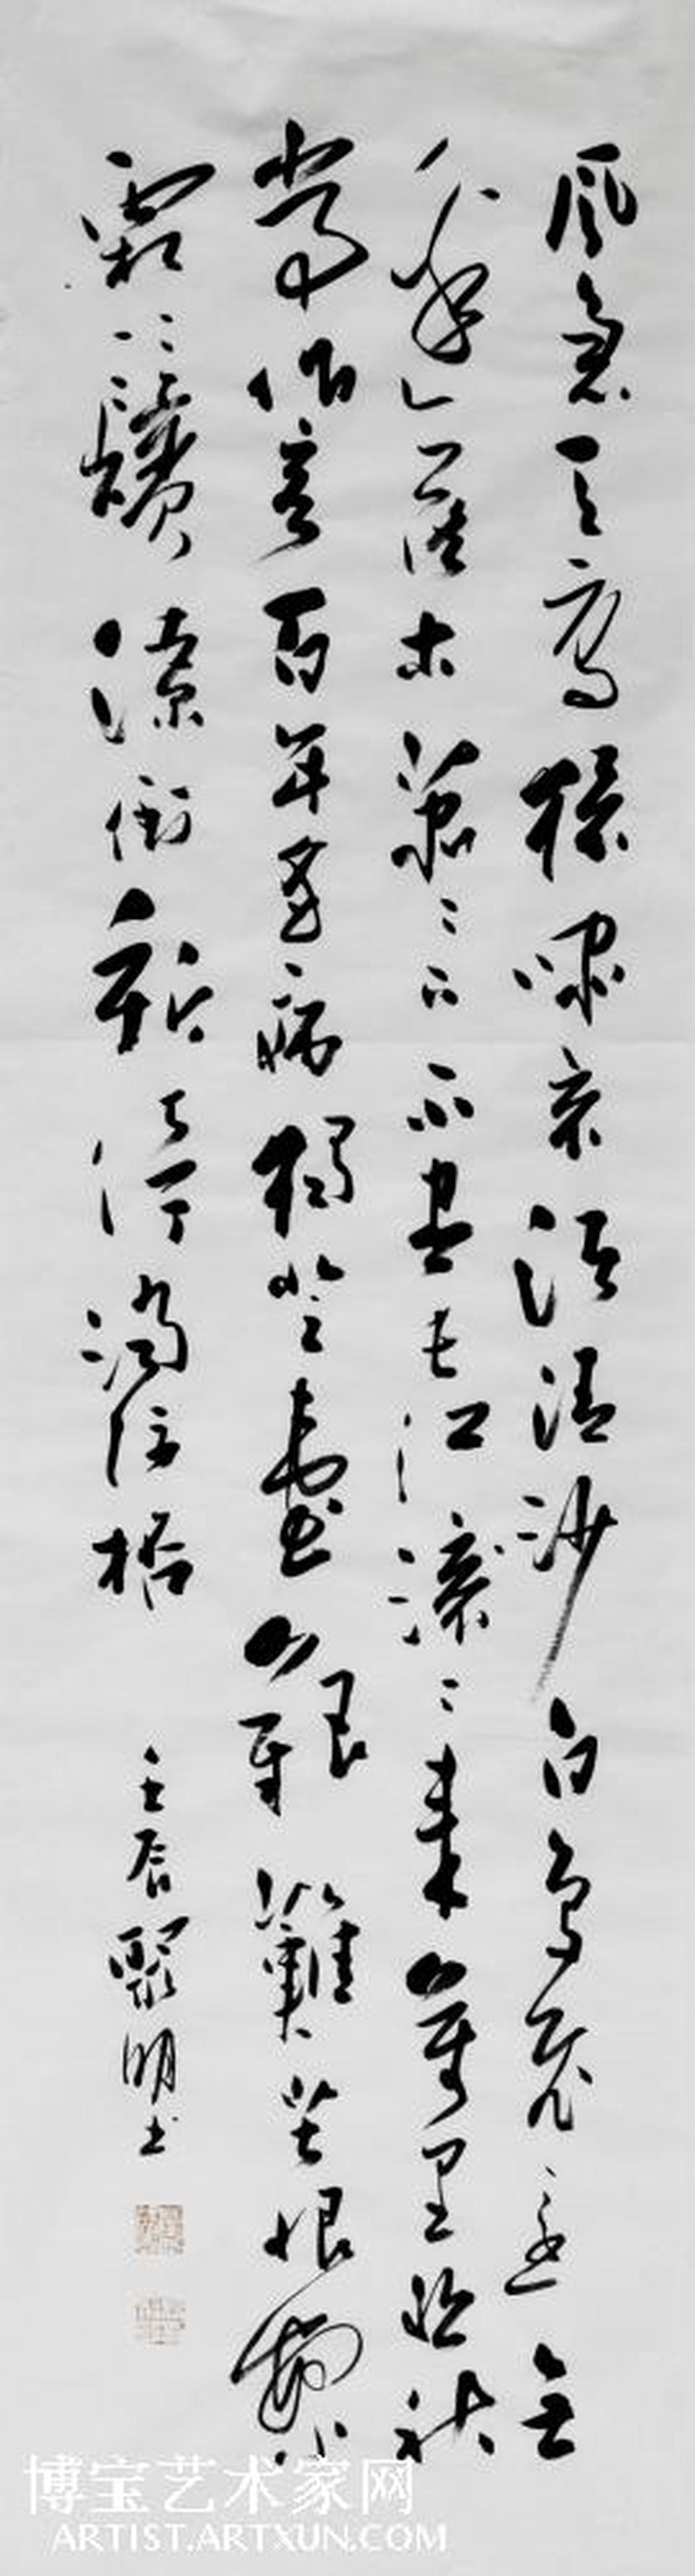 風急天高猿嘯哀渚清沙白鳥飛迴無
邊落木蕭々下不盡長江滾々來萬里悲秋
常作客百年多病獨登臺艱難苦恨繁
霜鬢潦倒新停濁酒杯
壬辰 明书
博宝艺术家网
ARTIST.ARTXUN.COM